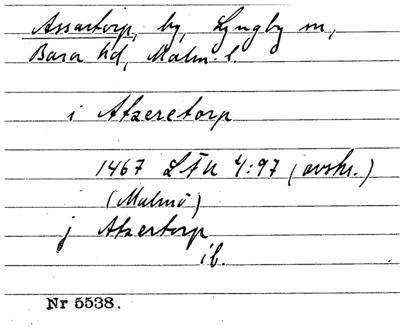 Assartorp, by, Lyngby sn,
Bara hd, Malm. l.
i Atzeretorp
1467 LÅU 4:97 (avskr.)
(Malmö)
j Atzertorp
ib.
Nr 5538.